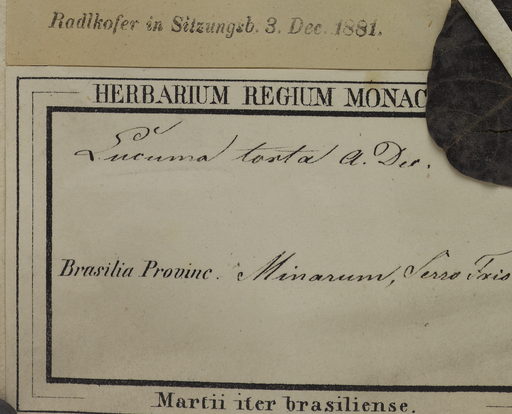 Radlkofer in Sitzungsb. 3. Dec. 1881.
HERBARIUM REGIUM MONAC
Lucuma torta A. Dec.
Brasilia Provinc. Minarum, Serro Frio
Martii iter brasiliense.